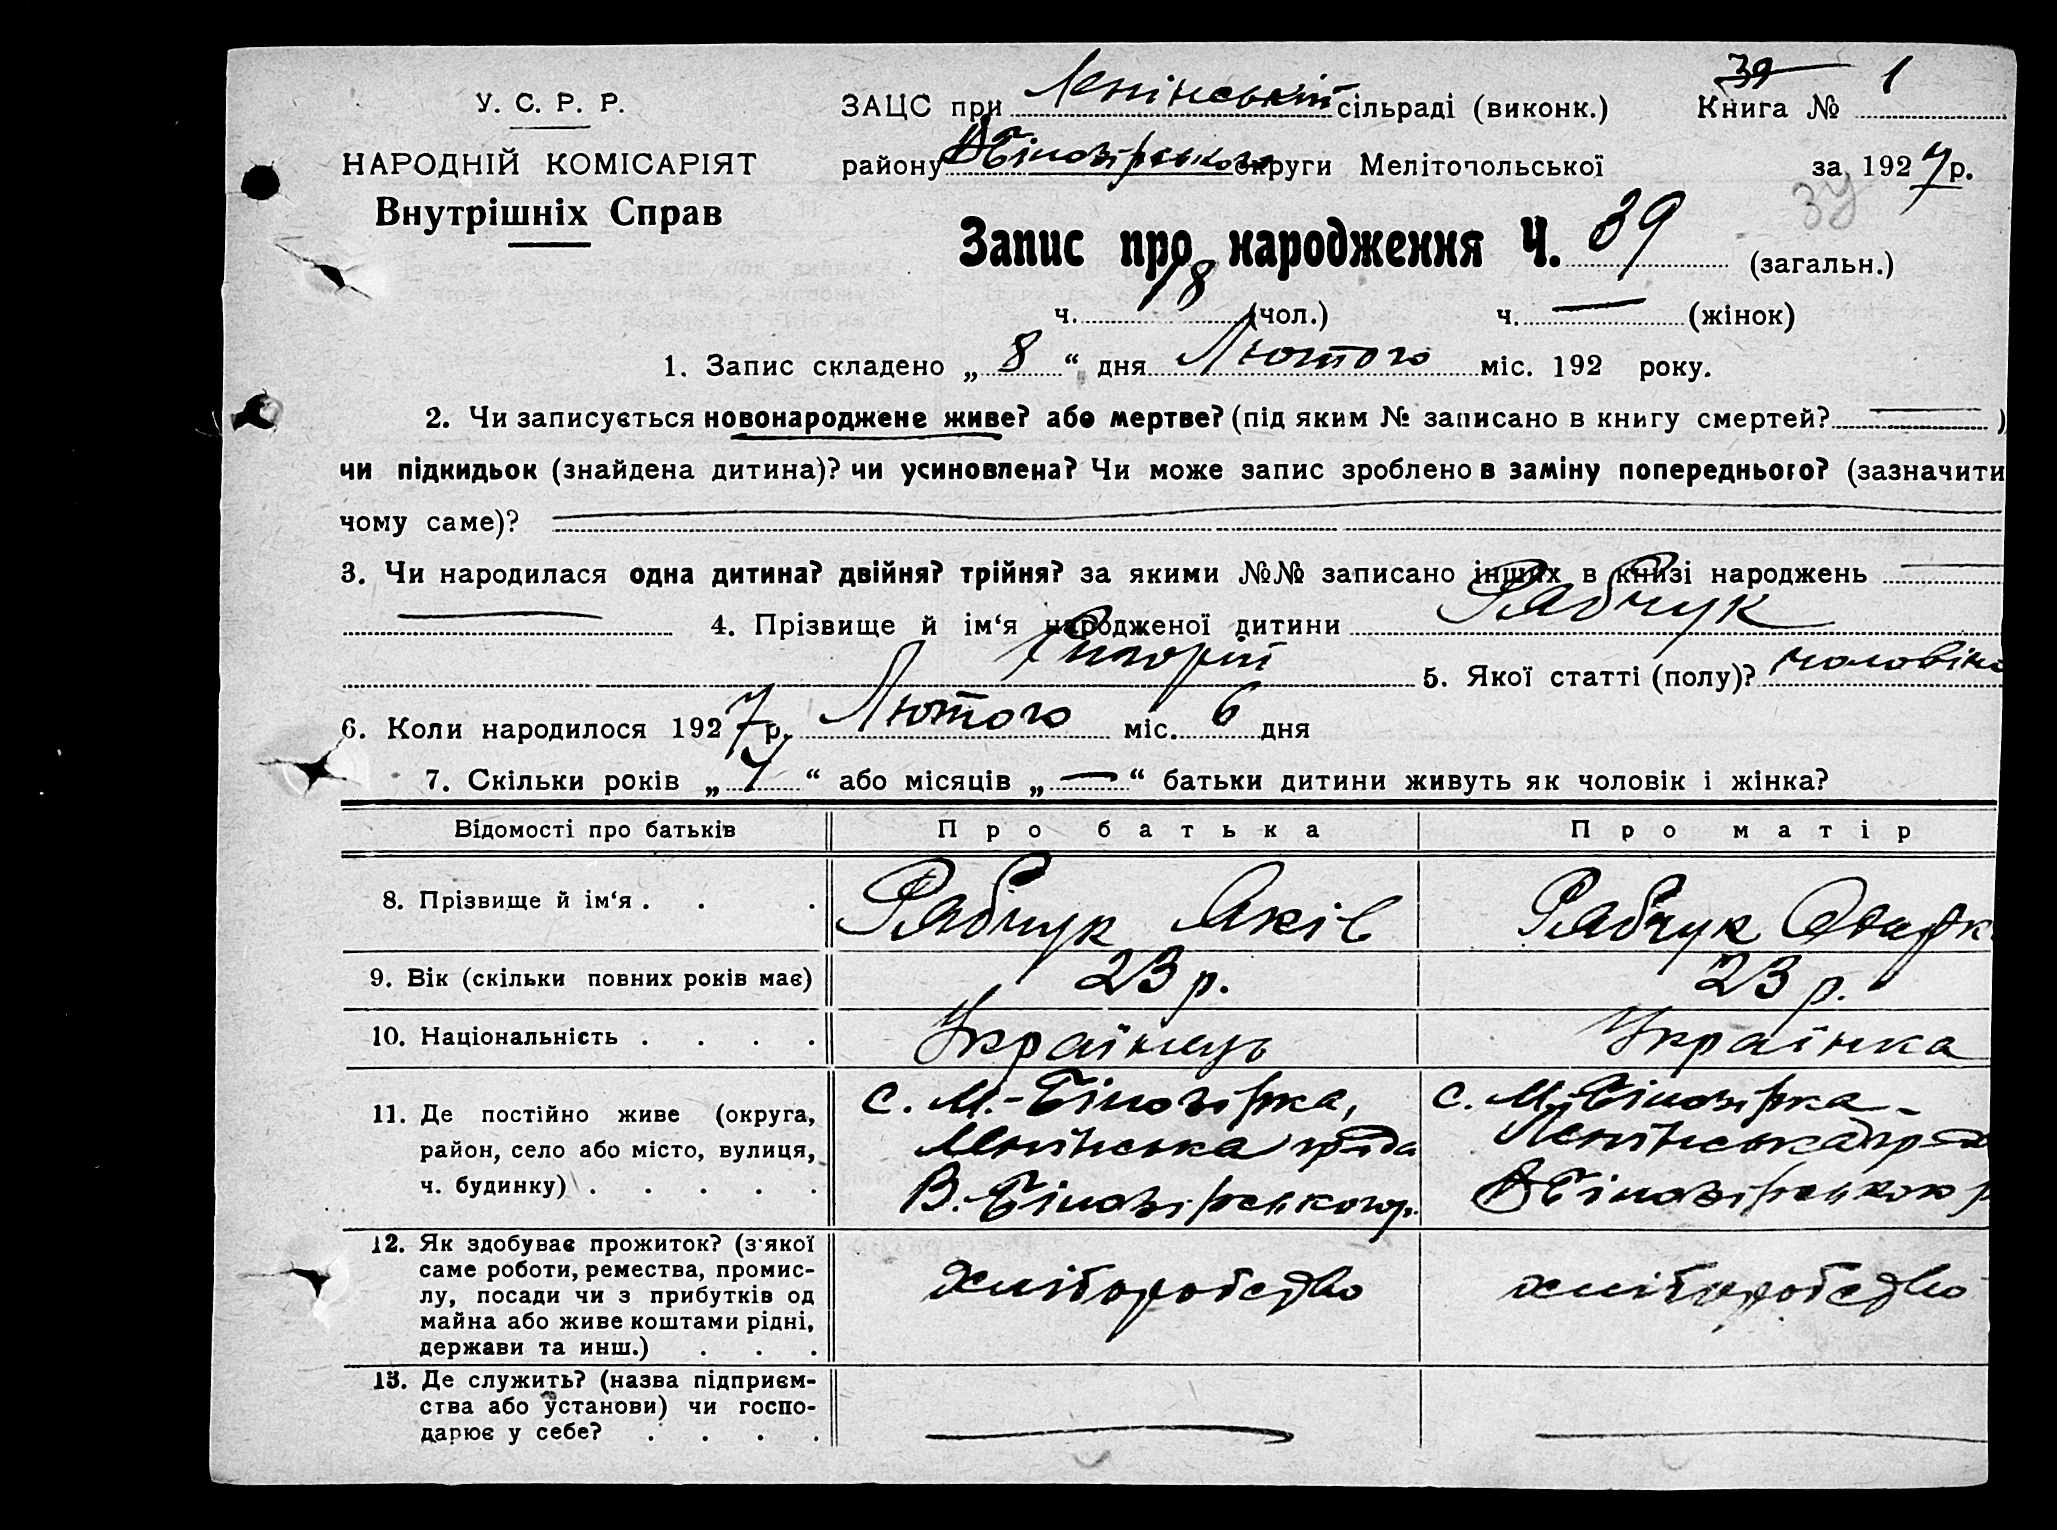 У. С. Р. Р.
НАРОДНІЙ КОМІСАРІЯТ
Внутрішніх Справ
39
ЗАЦС при Ленінській сільраді (виконк.) Книга № 1
району В Білозірського округи Мелітопольської за 1927 р.
39
Запис про народження Ч. 39 (загальн.)
ч. 18 (чол.) ч. — (жінок)
1. Запис складено „ 8 “ дня Лютого міс. 192 року.
2. Чи записується новонароджене живе? або мертве? (під яким № записано в книгу смертей? — )
чи підкидьок (знайдена дитина)? чи усиновлена? Чи може запис зроблено в заміну попереднього? (зазначити
чому саме)? —
3. Чи народилася одна дитина? двійня? трійня? за якими №№ записано інших в книзі народжень —
— 4. Прізвище й ім‘я народженої дитини Рябчук
Григорій 5. Якої статті (полу)? чоловіч
6. Коли народилося 1927 р. Лютого міс. 6 дня
7. Скільки років „ “ або місяців „ — “ батьки дитини живуть як чоловік і жінка?
Відомості про батьків Про батька Про матір
8. Прізвище й ім‘я . . . Рябчук Яків Рябчук Одарк
9. Вік (скільки повних років має) 23 р. 23 р.
10. Національність . . . . Українець Українка
11. Де постійно живе (округа, с. М.-Білозірка, с. М-Білозірка
район, село або місто, вулиця, Ленінська Ленінська
ч. будинку) . . . . . В.-Білозірського р. В Білозірського р
12. Як здобуває прожиток? (з'якої
саме роботи, ремества, промис-
лу, посади чи з прибутків од хліборобство хліборобство
майна або живе коштами рідні,
держави та инш.) . . .
13. Де служить? (назва підприєм-
ства або установи) чи госпо-
дарює у себе? . . . . — —